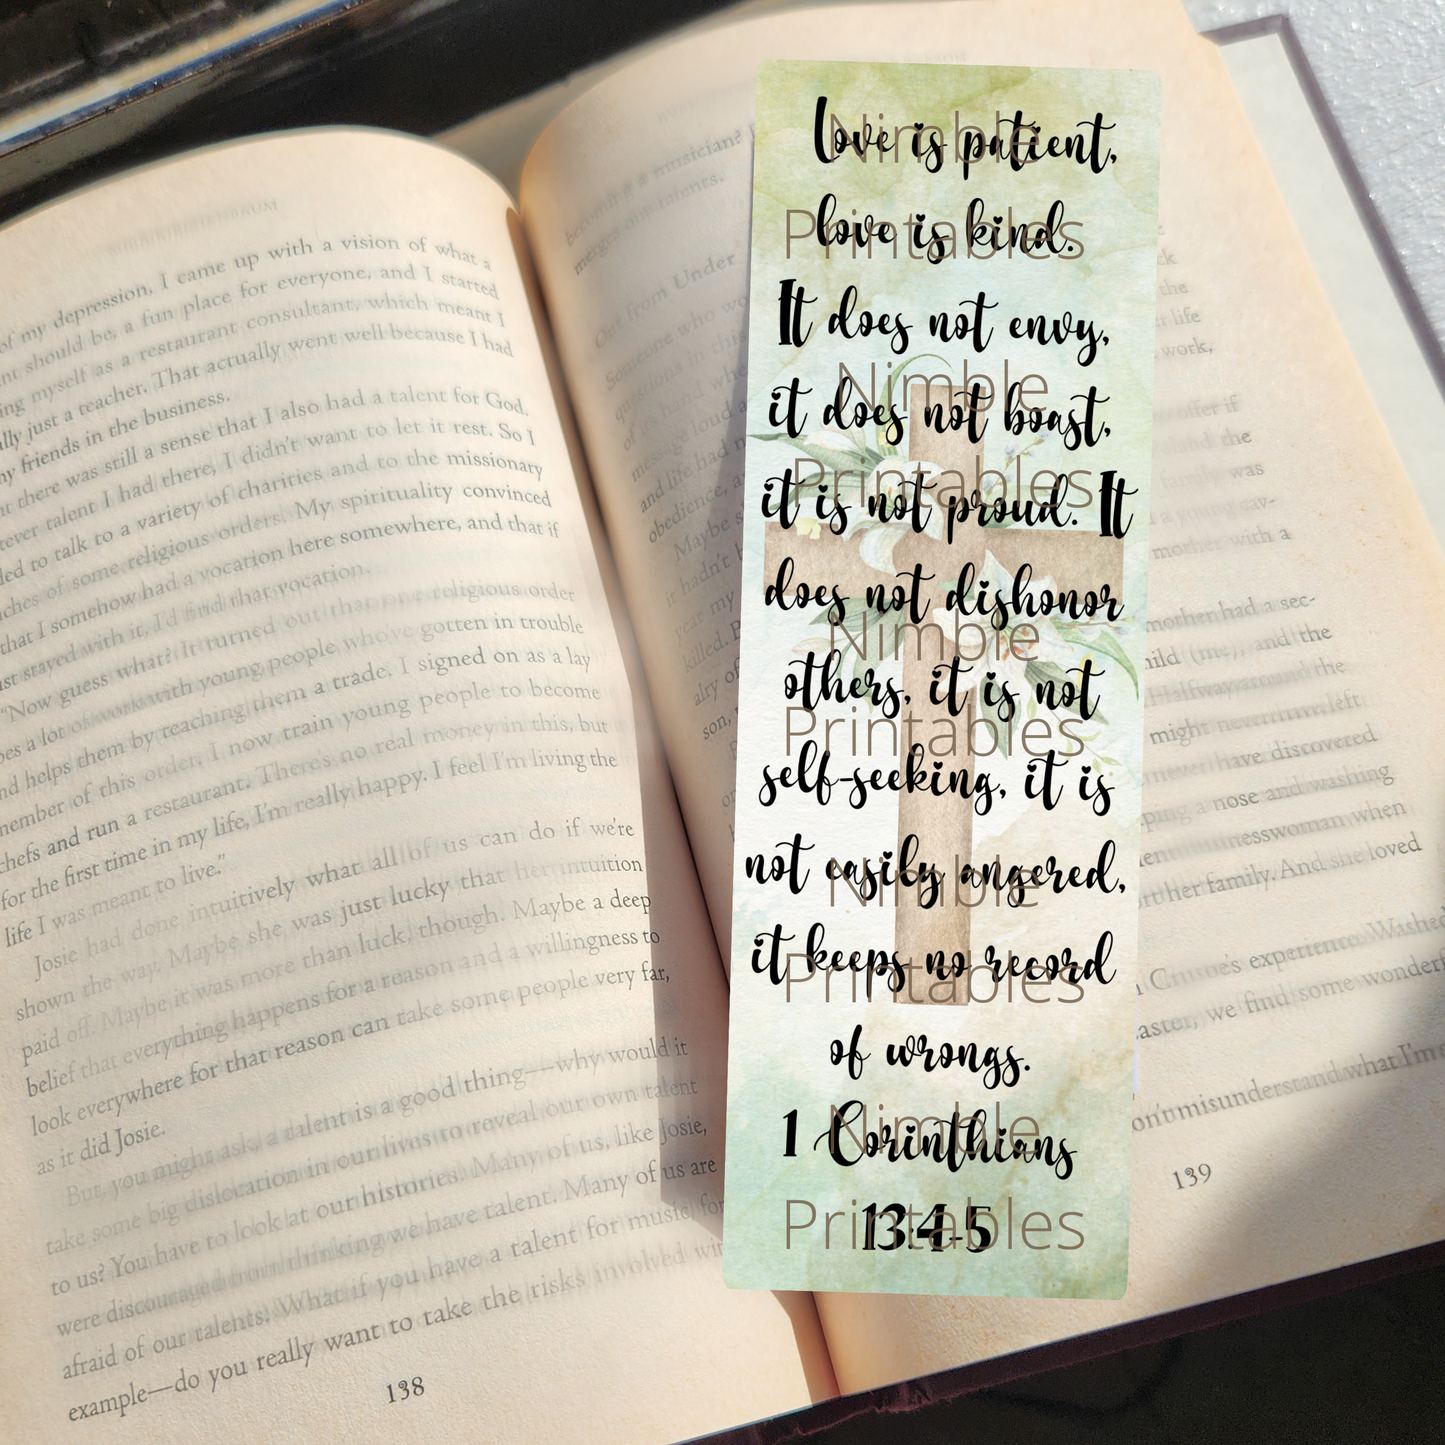 of my depression, I came up with a vision of what a
nt should be, a fun place for everyone, and I started
ng myself as a restaurant consultant, which meant I
lly just a teacher. That actually went well because I had
ny friends in the business.
t there was still a sense that I also had a talent for God.
tever talent I had there, I didn't want to let it rest. So I
led to talk to a variety of charities and to the missionary
ches of some religious orders. My spirituality convinced
that I somehow had a vocation here somewhere, and that if
ust stayed with it, I'd find that vocation.
"Now guess what? It turned out that one religious order
oes a lot of work with young people who've gotten in trouble
nd helps them by teaching them a trade. I signed on as a lay
member of this order. I now train young people to become
chefs and run a restaurant. There's no real money in this, but
for the first time in my life, I'm really happy. I feel I'm living the
life I was meant to live."
Josie had done intuitively what all of us can do if we're
shown the way. Maybe she was just lucky that her intuition
paid off. Maybe it was more than luck, though. Maybe a deep
belief that everything happens for a reason and a willingness to
look everywhere for that reason can take some people very far,
as it did Josie.
But, you might ask, a talent is a good thing—why would it
take some big dislocation in our lives to reveal our own talent
to us? You have to look at our histories. Many of us, like Josie,
were discouraged from thinking we have talent. Many of us are
afraid of our talents. What if you have a talent for music for
example—do you really want to take the risks involved wit
138
becoming a musician?
merges our talents.
Out from Under
Someone who wo
questions in this
of us hand whe
message loud a
and life had n
obedience, a
Maybe s
it hadn't b
year my
killed. P
alry of
son,
Love is patient,
love is kind.
It does not envy,
it does not boast,
it is not proud. It
does not dishonor
others, it is not
self-seeking, it is
not easily angered,
it keeps no record
of wrongs.
1 Corinthians
13:4-5
Nimble
Printables
Nimble
Printables
Nimble
Printables
Nimble
Printables
Nimble
Printables
ck
the
er life
work,
offer if
and the
family was
a young cav-
mother with a
mother had a sec-
hild (me), and the
Halfway around the
might never have left
never have discovered
ping a nose and washing
nesswoman when
her family. And she loved
Crusoe's experience. Washed
aster, we find some wonderf
on't misunderstand what I'm
139